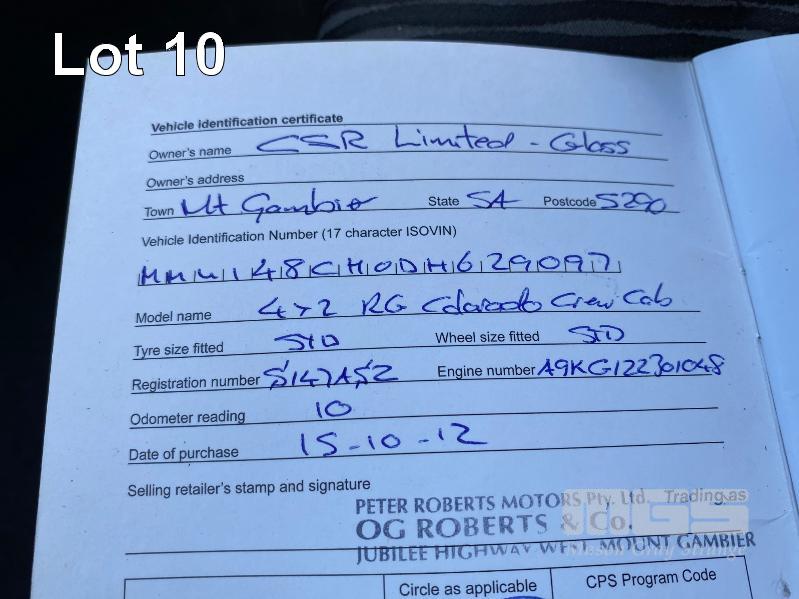 Lot 10
Vehicle identification certificate
Owner's name CSR Limited - Glass
Owner's address
Town Mt Gambier State SA Postcode 5290
Vehicle Identification Number (17 character ISOVIN)
MMU148CH0DH629097
Model name 4x2 RG Colorado Crew Cab
Tyre size fitted STD Wheel size fitted STD
Registration number S147A52 Engine number A9KG122301048
Odometer reading 10
Date of purchase 15-10-12
Selling retailer's stamp and signature
PETER ROBERTS MOTORS Pty. Ltd. Trading as
OG ROBERTS & Co.
JUBILEE HIGHWAY WEST, MOUNT GAMBIER
MGS
Mason Gray Strange
Circle as applicable CPS Program Code